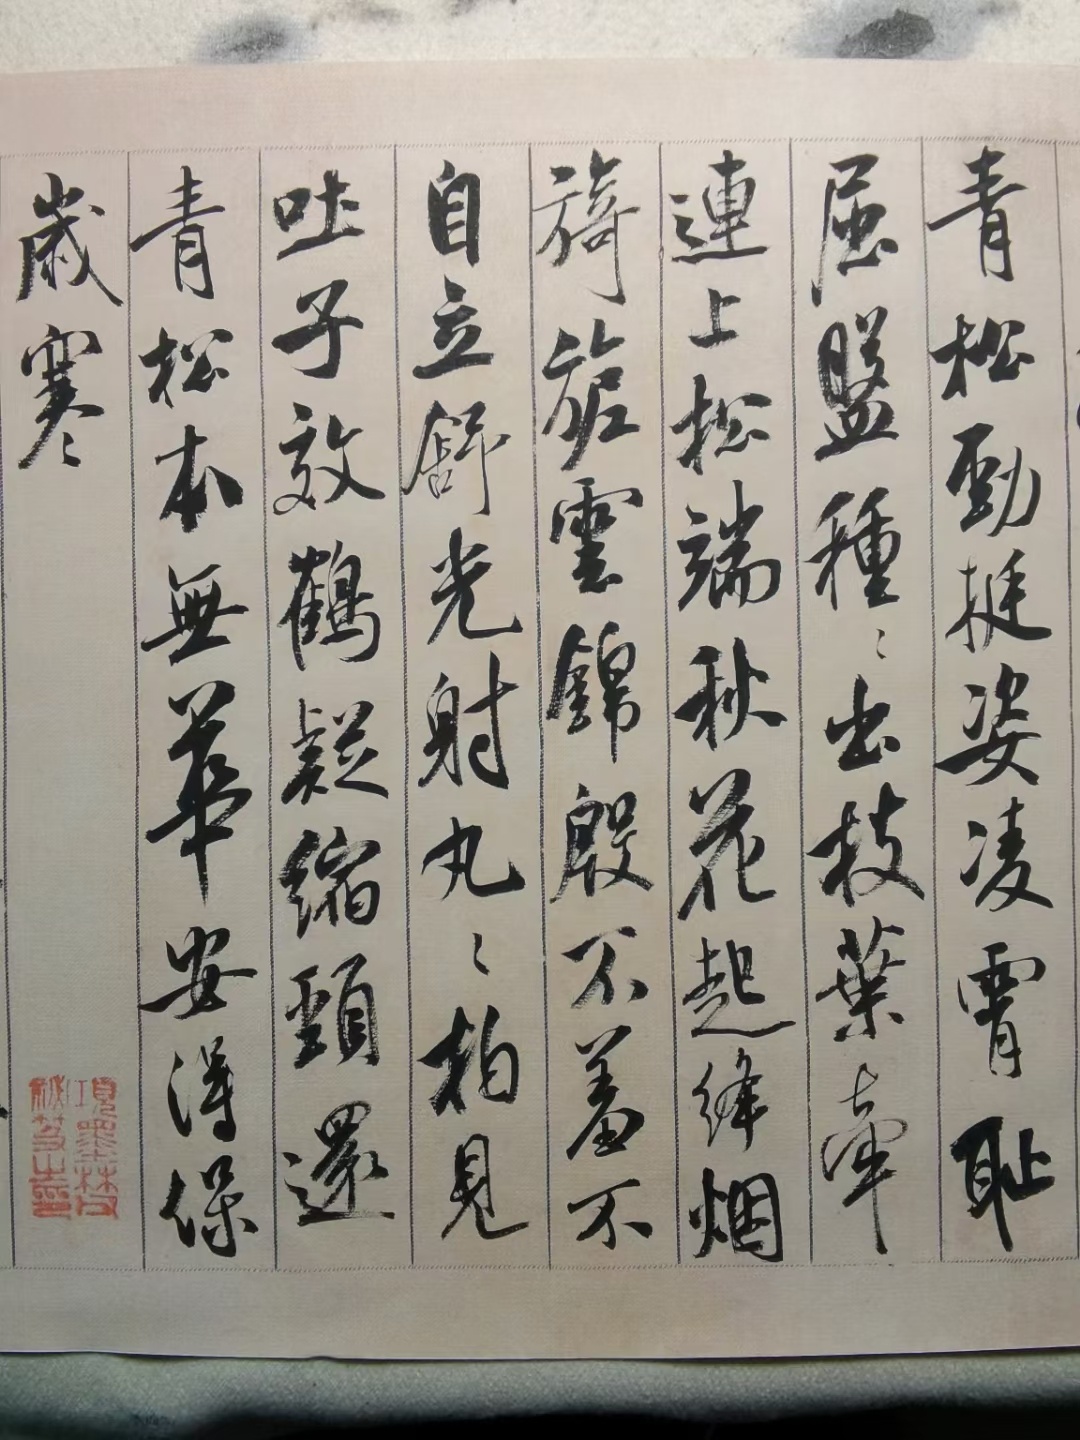 青松勁挺姿凌霄耻
屈盤種〻出枝葉牽
連上松端秋花起絳烟
旖旎雲錦殷不羞不
自立舒光射丸〻柏見
吐子效鶴疑縮頸還
青松本無華安得保
歲寒
項墨林父
秘笈之印